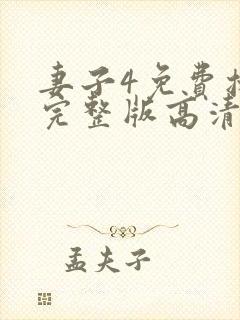 妻子4免費
完整版高清
孟夫子